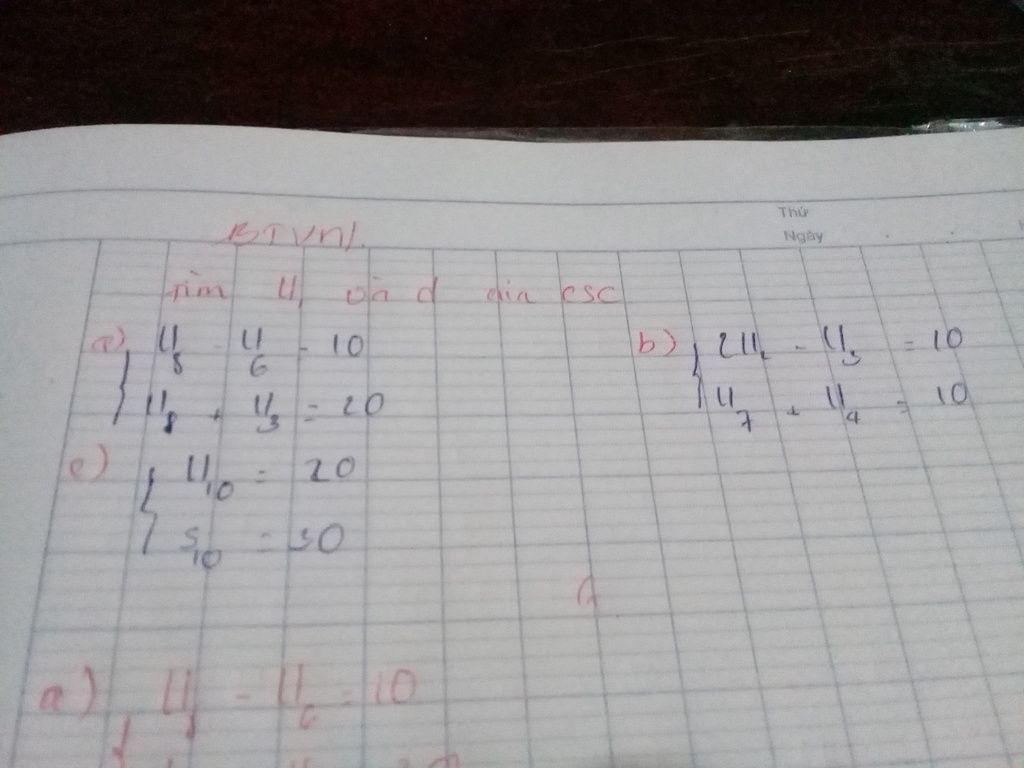 Thứ
Ngày
BTVN1.
Tìm U1 và d của csc
a) U8 - U6 = 10
U8 + U3 = 20
b) 2U1 - U3 = 10
U7 + U4 = 10
c) U10 = 20
S10 = 30
a) U - U6 = 10